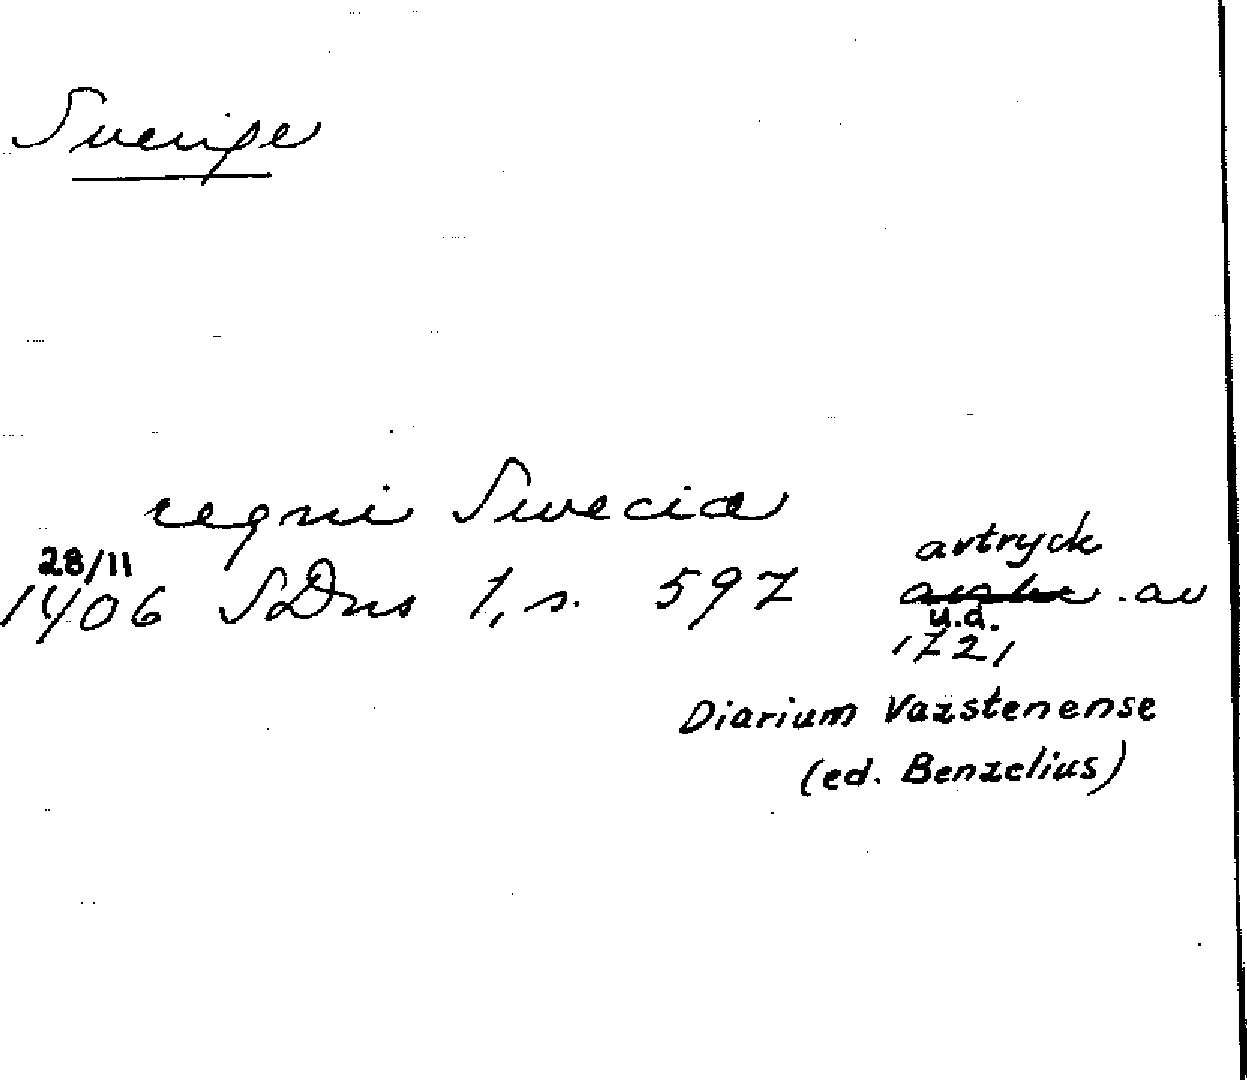 Sverige
regni Swecia
28/11
avtryck
1406 SDns 1, s. 597 av
u.d.
1721
Diarium Vazstenense
(ed. Benzelius)